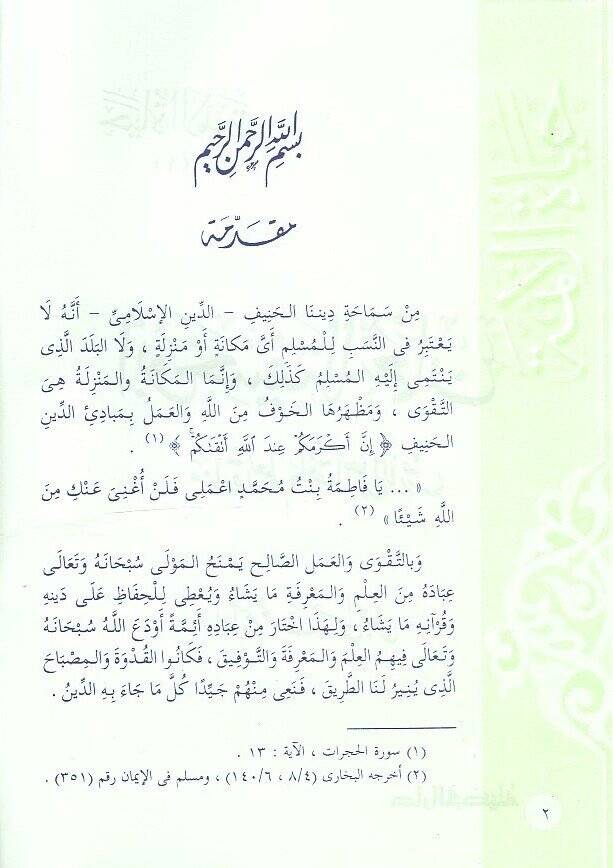 بِسْمِ اللَّهِ الرَّحْمَنِ الرَّحِيمِ
مقدّمة
مِنْ سَمَاحَةِ دِينِنَا الحَنِيفِ - الدِّينِ الإِسْلَامِيِّ - أَنَّهُ لَا
يَعْتَبِرُ فى النَّسَبِ لِلْمُسْلِمِ أَىَّ مَكَانَةٍ أَوْ مَنْزِلَةٍ ، وَلَا البَلَدَ الَّذِى
يَنْتَمِى إِلَيْهِ المُسْلِمُ كَذَلِكَ ، وَإِنَّمَا المَكَانَةُ والمَنْزِلَةُ هِىَ
التَّقْوَى ، وَمَظْهَرُهَا الخَوْفُ مِنَ اللَّهِ وَالعَمَلُ بِمَبادِئِ الدِّينِ
الحَنِيفِ ﴿ إِنَّ أَكْرَمَكُمْ عِندَ اللَّهِ أَتْقَىٰكُمْ ﴾ (١) .
« ... يَا فَاطِمَةُ بِنْتُ مُحَمَّدٍ اعْمَلِى فَلَنْ أُغْنِىَ عَنْكِ مِنَ
اللَّهِ شَيْئًا » (٢) .
وَبِالتَّقْوَى وَالعَمَلِ الصَّالِحِ يَمْنَحُ المَوْلَى سُبْحَانَهُ وَتَعَالَى
عِبَادَهُ مِنَ العِلْمِ وَالمَعْرِفَةِ مَا يَشَاءُ وَيُعْطِى لِلْحِفَاظِ عَلَى دَينِهِ
وَقُرْآنِهِ مَا يَشَاءُ ، وَلِهَذَا اخْتَارَ مِنْ عِبَادِهِ أَئِمَّةً أَوْدَعَ اللَّهُ سُبْحَانَهُ
وَتَعَالَى فِيهِمُ العِلْمَ وَالمَعْرِفَةَ وَالتَّوْفِيقَ ، فَكَانُوا القُدْوَةَ وَالمِصْبَاحَ
الَّذِى يُنِيرُ لَنَا الطَّرِيقَ ، فَنَعِى مِنْهُمْ جَيِّدًا كُلَّ مَا جَاءَ بِهِ الدِّينُ .
(١) سورة الحجرات ، الآية : ١٣ .
(٢) أخرجه البخارى (٨/٤ ، ١٤٠/٦) ، ومسلم فى الإيمان رقم (٣٥١) .
٢